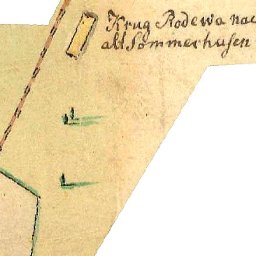 Krug Rodewa nac
alt Sommerhusen